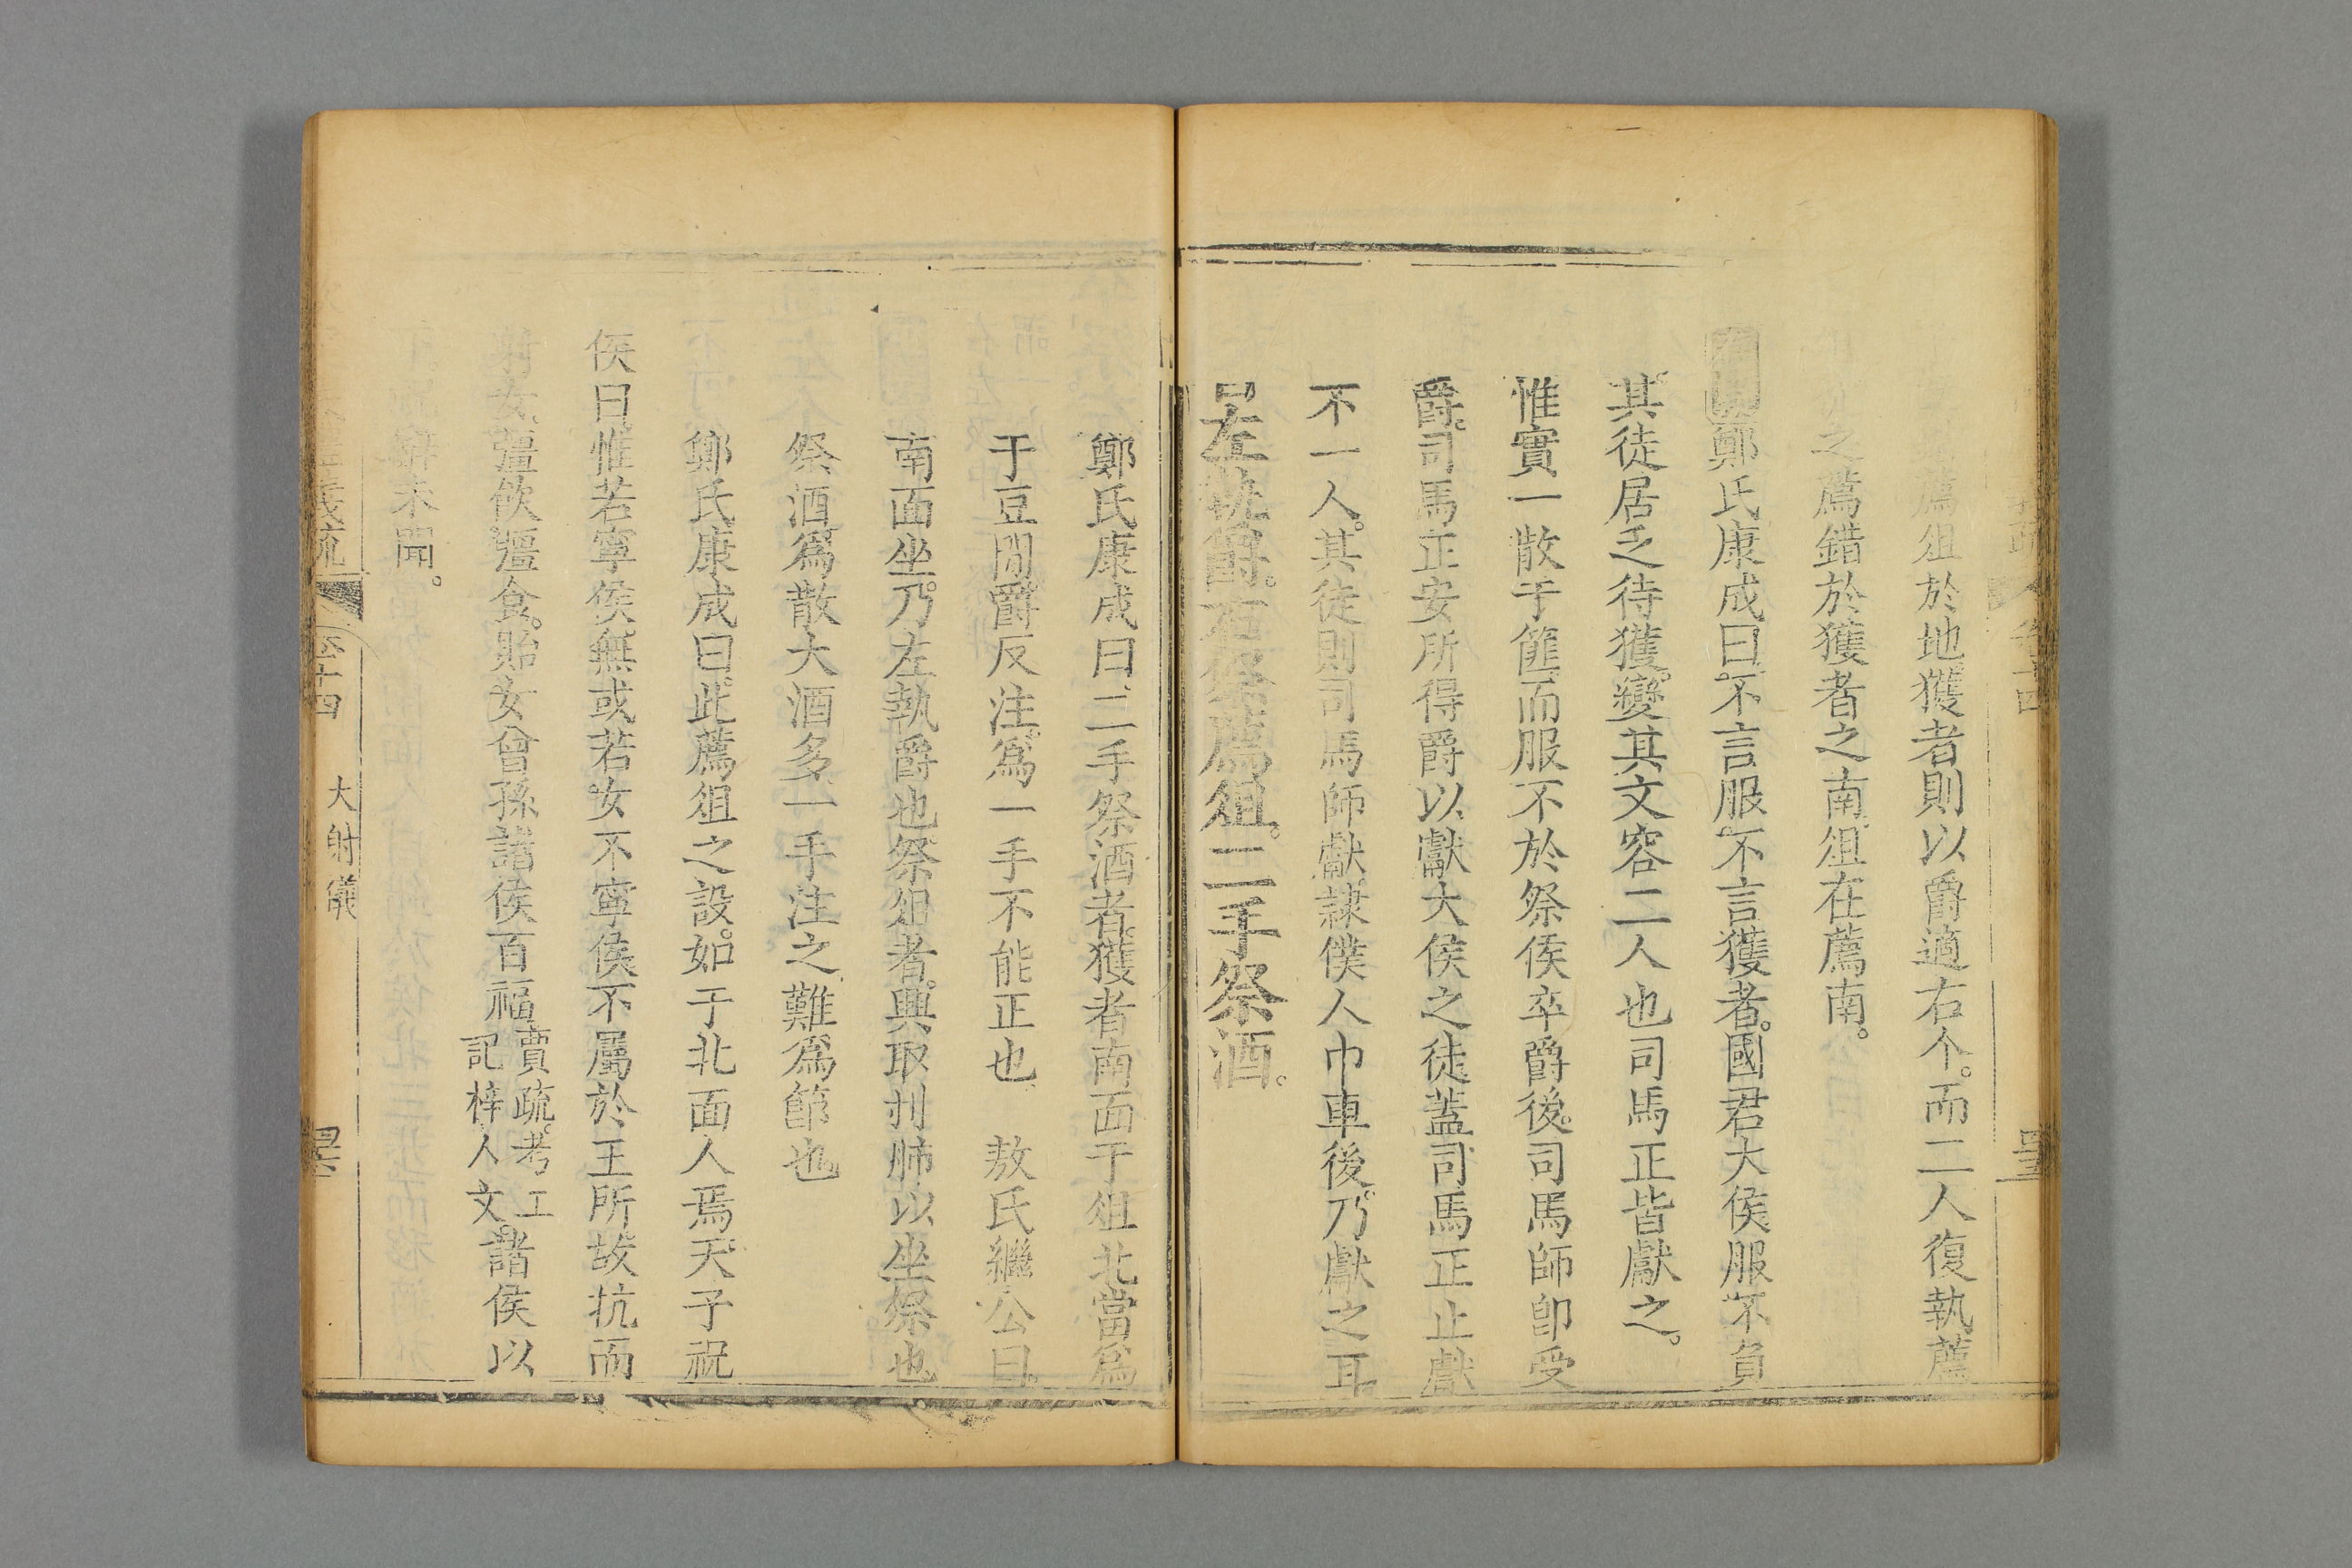 薦俎於地獲者則以爵適右个。而二人復執薦
之薦錯於獲者之南俎在薦南。
鄭氏康成曰不言服不言獲者。國君大侯服不負
其徒居乏待獲。變其文容二人也司馬正皆獻之。
惟實一散于篚而服不於祭侯卒爵後。司馬師卽受
爵。司馬正安所得爵以獻大侯之徒蓋司馬正止獻
不一人。其徒則司馬師獻隷僕人巾車後乃獻之耳。
左執爵。右祭薦俎。二手祭酒。
鄭氏康成曰二手祭酒者。獲者南面于俎北當爲
于豆間爵反注。爲一手不能正也 敖氏繼公曰。
南面坐。乃左執爵也祭俎者。興取刌肺以坐祭也。
祭酒爲散大酒多一手注之難爲節也
鄭氏康成曰此薦俎之設。如于北面人焉天子祝
侯曰惟若寧侯無或若女不寧侯不屬於王所故抗而
女彊飲彊食。貽女曾孫諸侯百福賈疏。考工記梓人文。諸侯以
未聞。
卷十四 大射儀